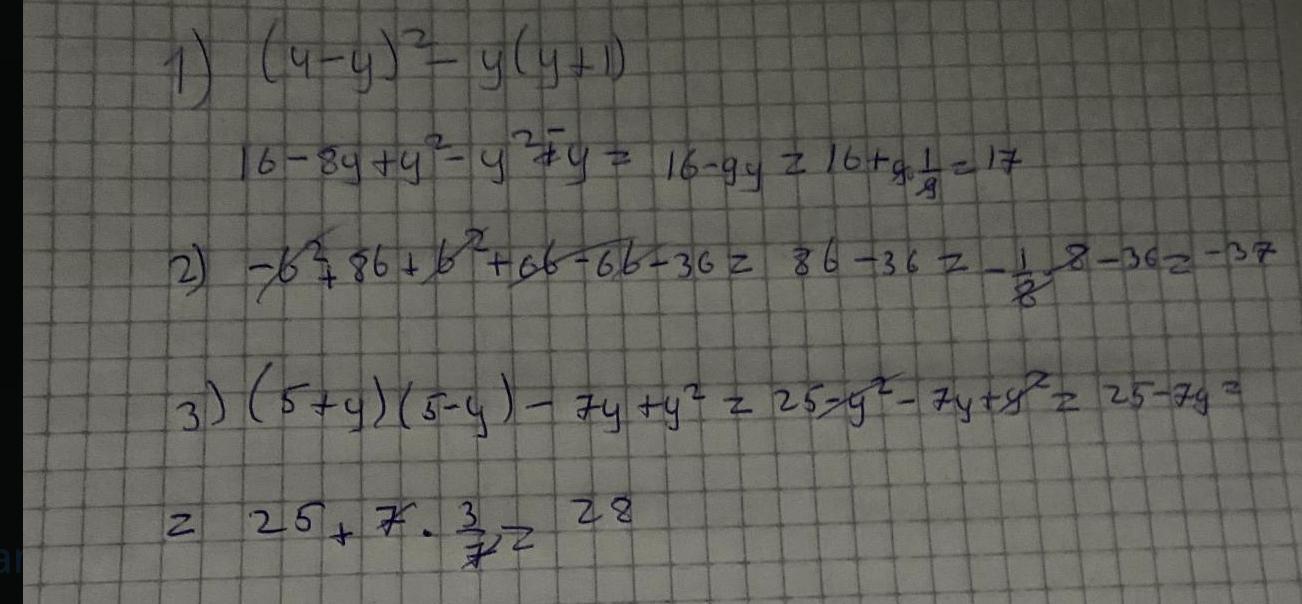 1) (4-y)² - y(y+1)
16-8y+y²-y²-y = 16-9y = 16+9·1/9=17
2) -b²+8b+b²+6b-6b-36= 8b-36= -1/8·8-36=-37
3) (5+y)(5-y)-7y+y² = 25-y²-7y+y²= 25-7y=
= 25+7·3/7= 28